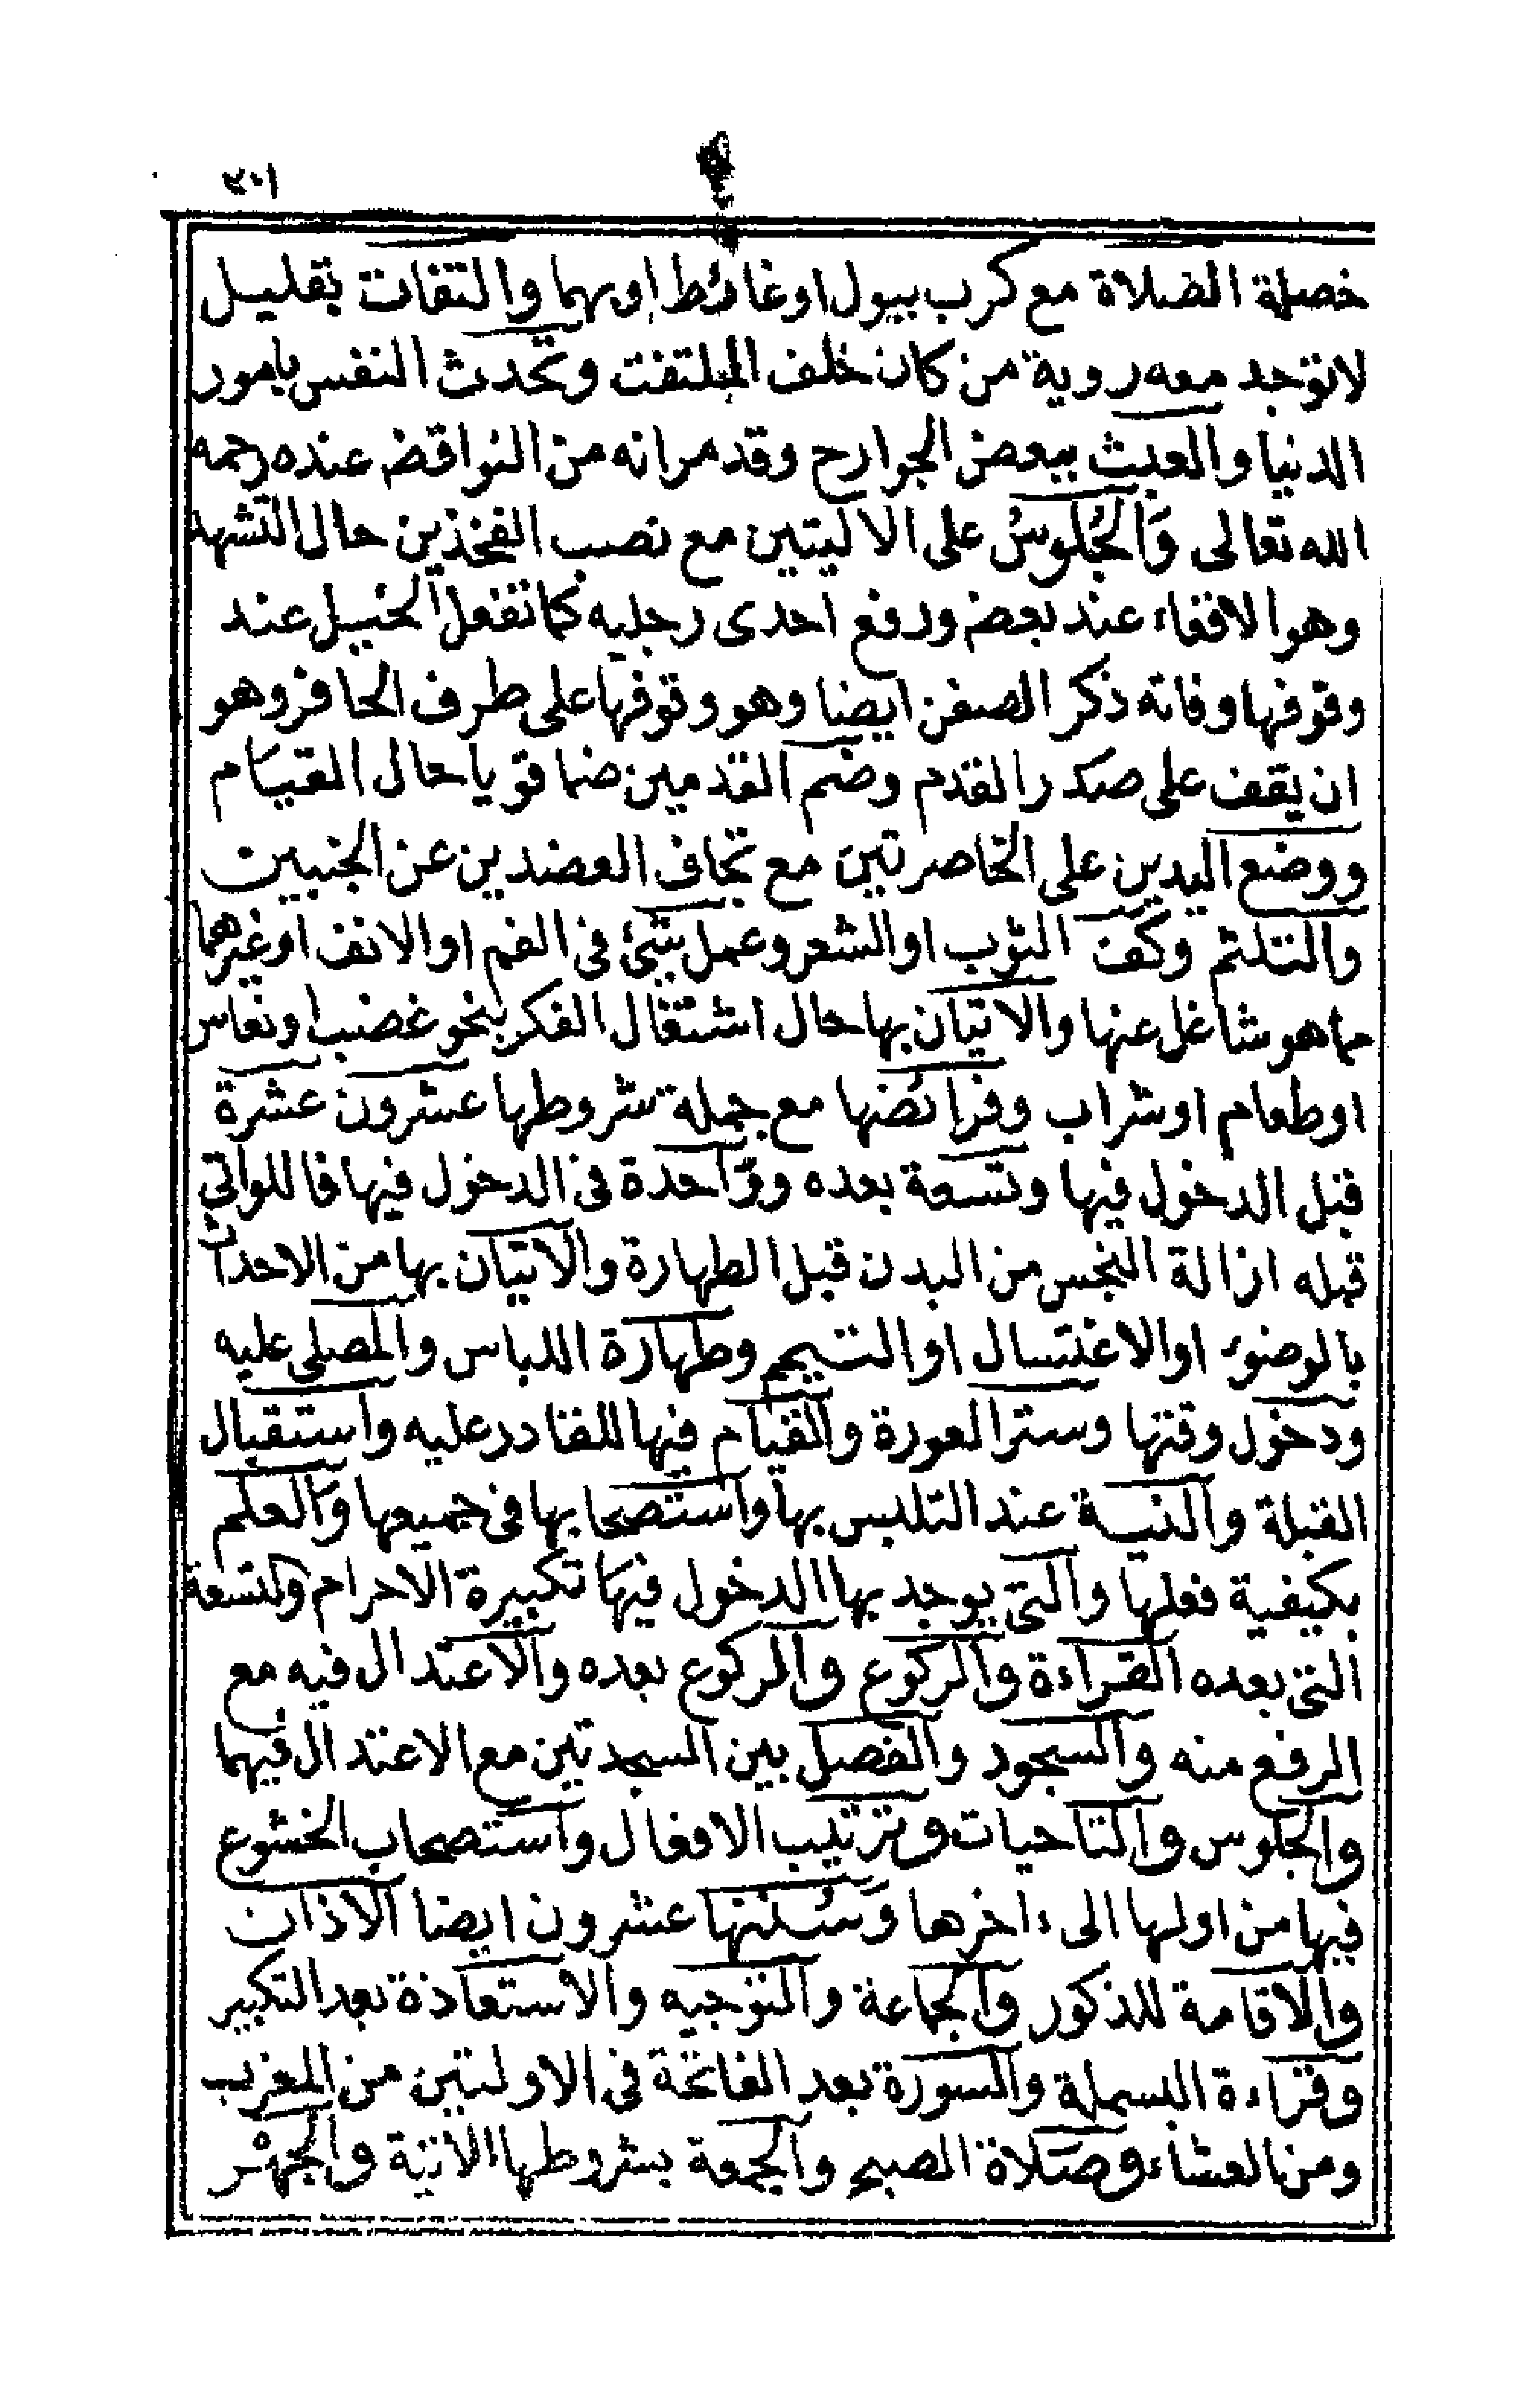 خصلة الصلاة مع كرب ببول او غائط او بهما والتفات بقليل
لا توجد معه روية من كان خلف الملتفت وتحدث النفس بامور
الدنيا والعبث ببعض الجوارح وقد مر انه من النواقض عنده رحمه
الله تعالى وَالجُلُوسُ على الاليتين مع نصب الفخذين حال التشهد
وهو الاقعاء عند بعض ورفع احدى رجليه كما تفعل الخيل عند
وقوفها وفاته ذكر الصفن ايضا وهو وقوفها على طرف الحافر وهو
ان يقف على صدر القدم وضم القدمين ضما قويا حال القيام
ووضع اليدين على الخاصرتين مع تجافى العضدين عن الجنبين
والتلثم وكف الثوب او الشعر وعمل شئ فى الفم او الانف او غيرهما
مما هو شاغل عنها والاتيان بها حال اشتغال الفكر بنحو غضب او نعاس
او طعام او شراب وفرائضها مع جملة شروطها عشرون عشرة
قبل الدخول فيها وتسعة بعده وواحدة فى الدخول فيها فاللواتى
قبله ازالة النجس من البدن قبل الطهارة والاتيان بها من الاحداث
بالوضوء او الاغتسال او التيمم وطهارة اللباس والمصلى عليه
ودخول وقتها وستر العورة والقيام فيها للقادر عليه واستقبال
القبلة والنية عند التلبس بها واستصحابها فى جميعها والعلم
بكيفية فعلها والتى يوجد بها الدخول فيها تكبيرة الاحرام والتسعة
التى بعده القراءة والركوع والركوع بعده والاعتدال فيه مع
الرفع منه والسجود والفصل بين السجدتين مع الاعتدال فيهما
والجلوس والتاحيات وترتيب الافعال واستصحاب الخشوع
فيها من اولها الى ءاخرها وَسُننها عشرون ايضا الاذان
والاقامة للذكور والجماعة والتوجيه والاستعاذة بعد التكبير
وقراءة البسملة والسورة بعد الفاتحة فى الاولتين من المغرب
ومن العشاء وصلاة الصبح والجمعة بشروطها الاتية والجهْر